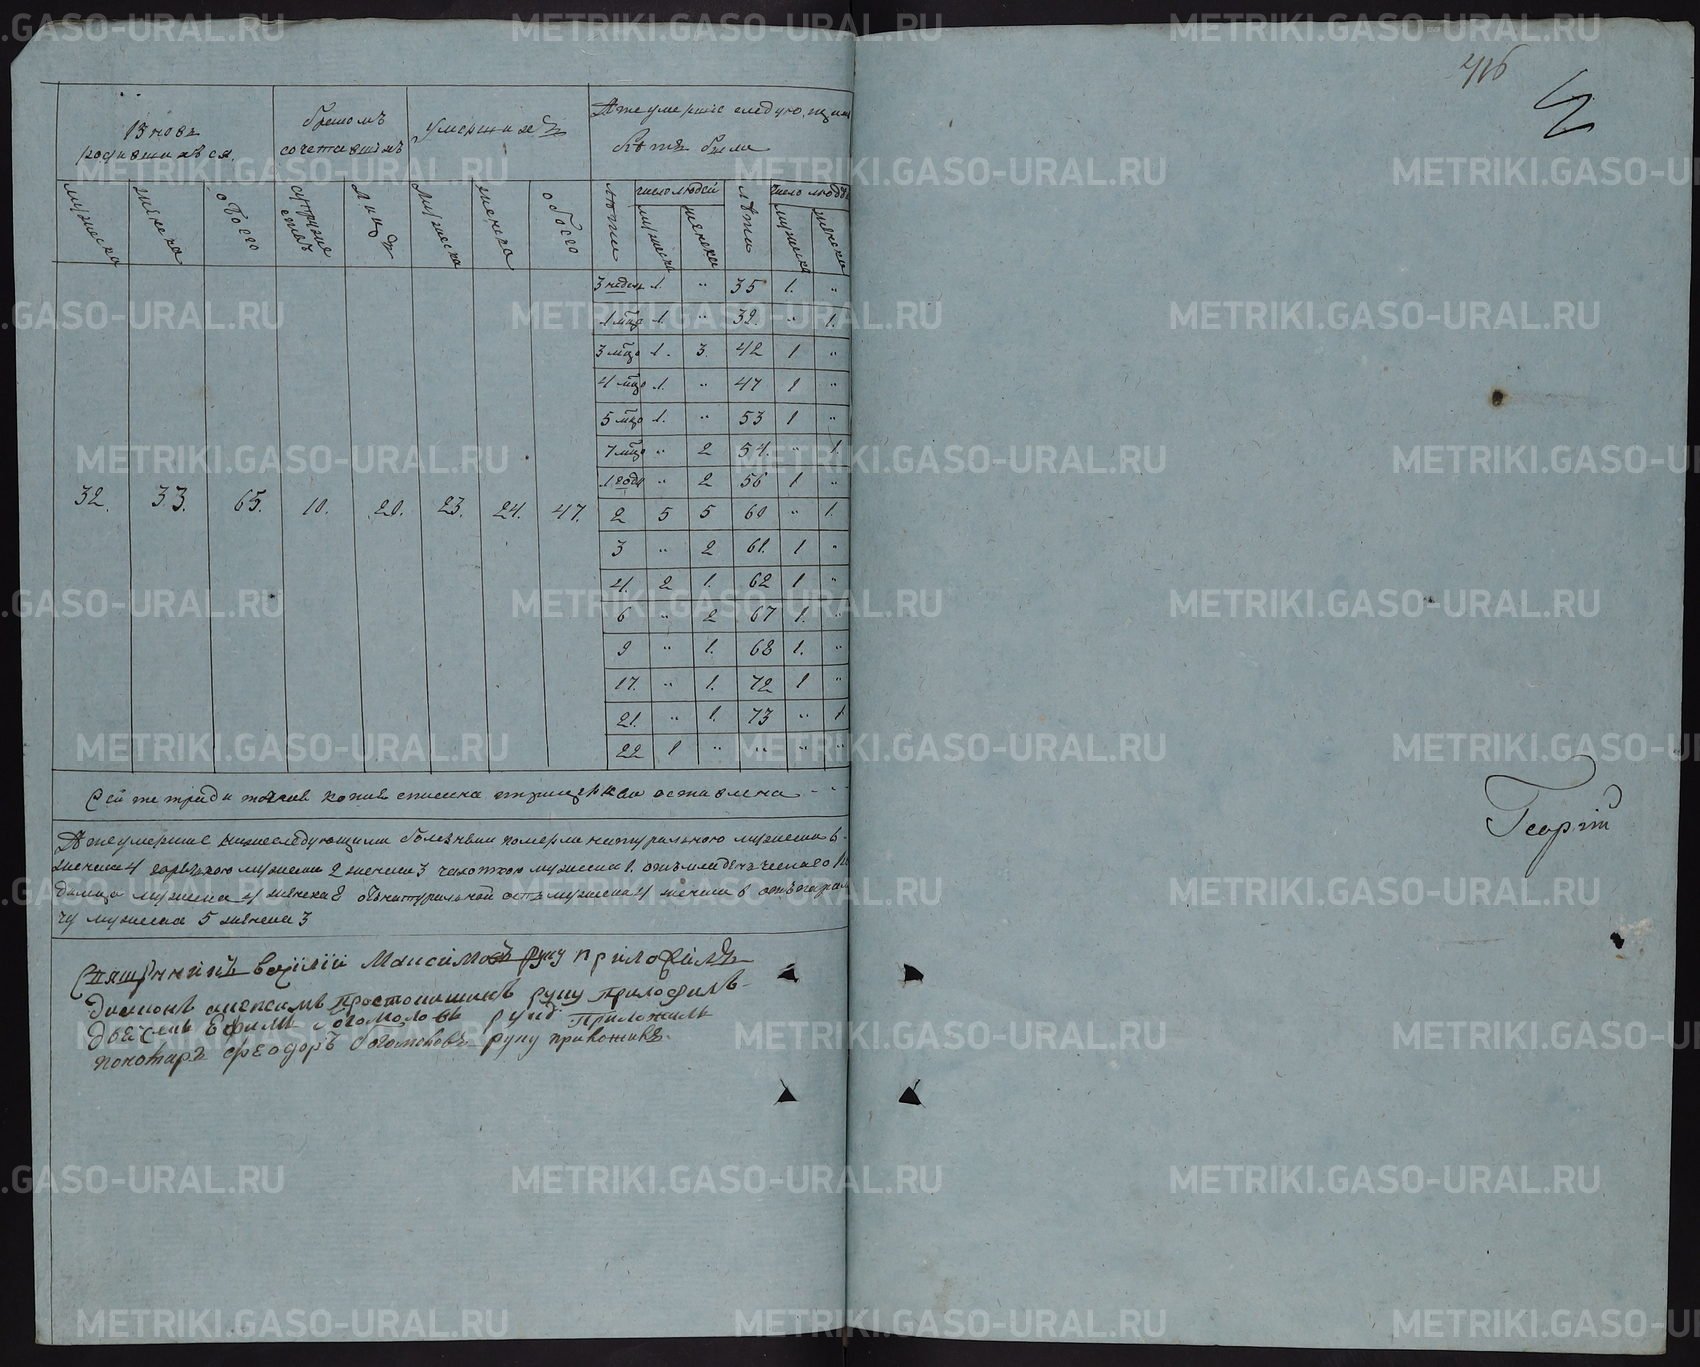 416
Вновь
родившихся.
браком
сочетавших
умерших
А же умершие следующими
летъ были
мужеска
женска
обоего
супруже
ствъ
лицъ
мужеска
женска
обоего
летъ
число людей
мужеска
женска
лѣта
число людей
мужеска
женска
3 недел 1. " 35 1. "
1 мцо 1. " 32. " 1.
3 мцо 1. 3. 42 1 "
4 мцо 1. " 47 1 "
5 мцо 1. " 53 1 "
7 мцо " 2 54. " 1.
1 года " 2 56 1 "
32. 33. 65. 10. 20. 23. 24. 47. 2 5 5 60 " 1.
3 " 2 61. 1 "
4. 2 1. 62 1 "
6 " 2 67 1. "
9 " 1. 68 1. "
17. " 1. 72 1 "
21. " 1. 73 " 1
22 1 " " " "
Сей тетради точная копия списана оставлена
А же умершие нижеследующими болезньми померли натурального мужеска 6
женска 4 горячкою мужеска 2 женска 3 чахоткою мужеска 1. отъ младенческаго
мужеска 4 женска 8 натуральной мужеска 4 женска 6
мужеска 5 женска 3
Священникъ Василій Максимовъ руку приложилъ
Диаконъ руку приложилъ
Дьячекъ Ефимъ Богомоловъ руку Приложилъ
пономарь Феодоръ Богомоловъ руку приложилъ
Георгій
METRIKI.GASO-URAL.RU